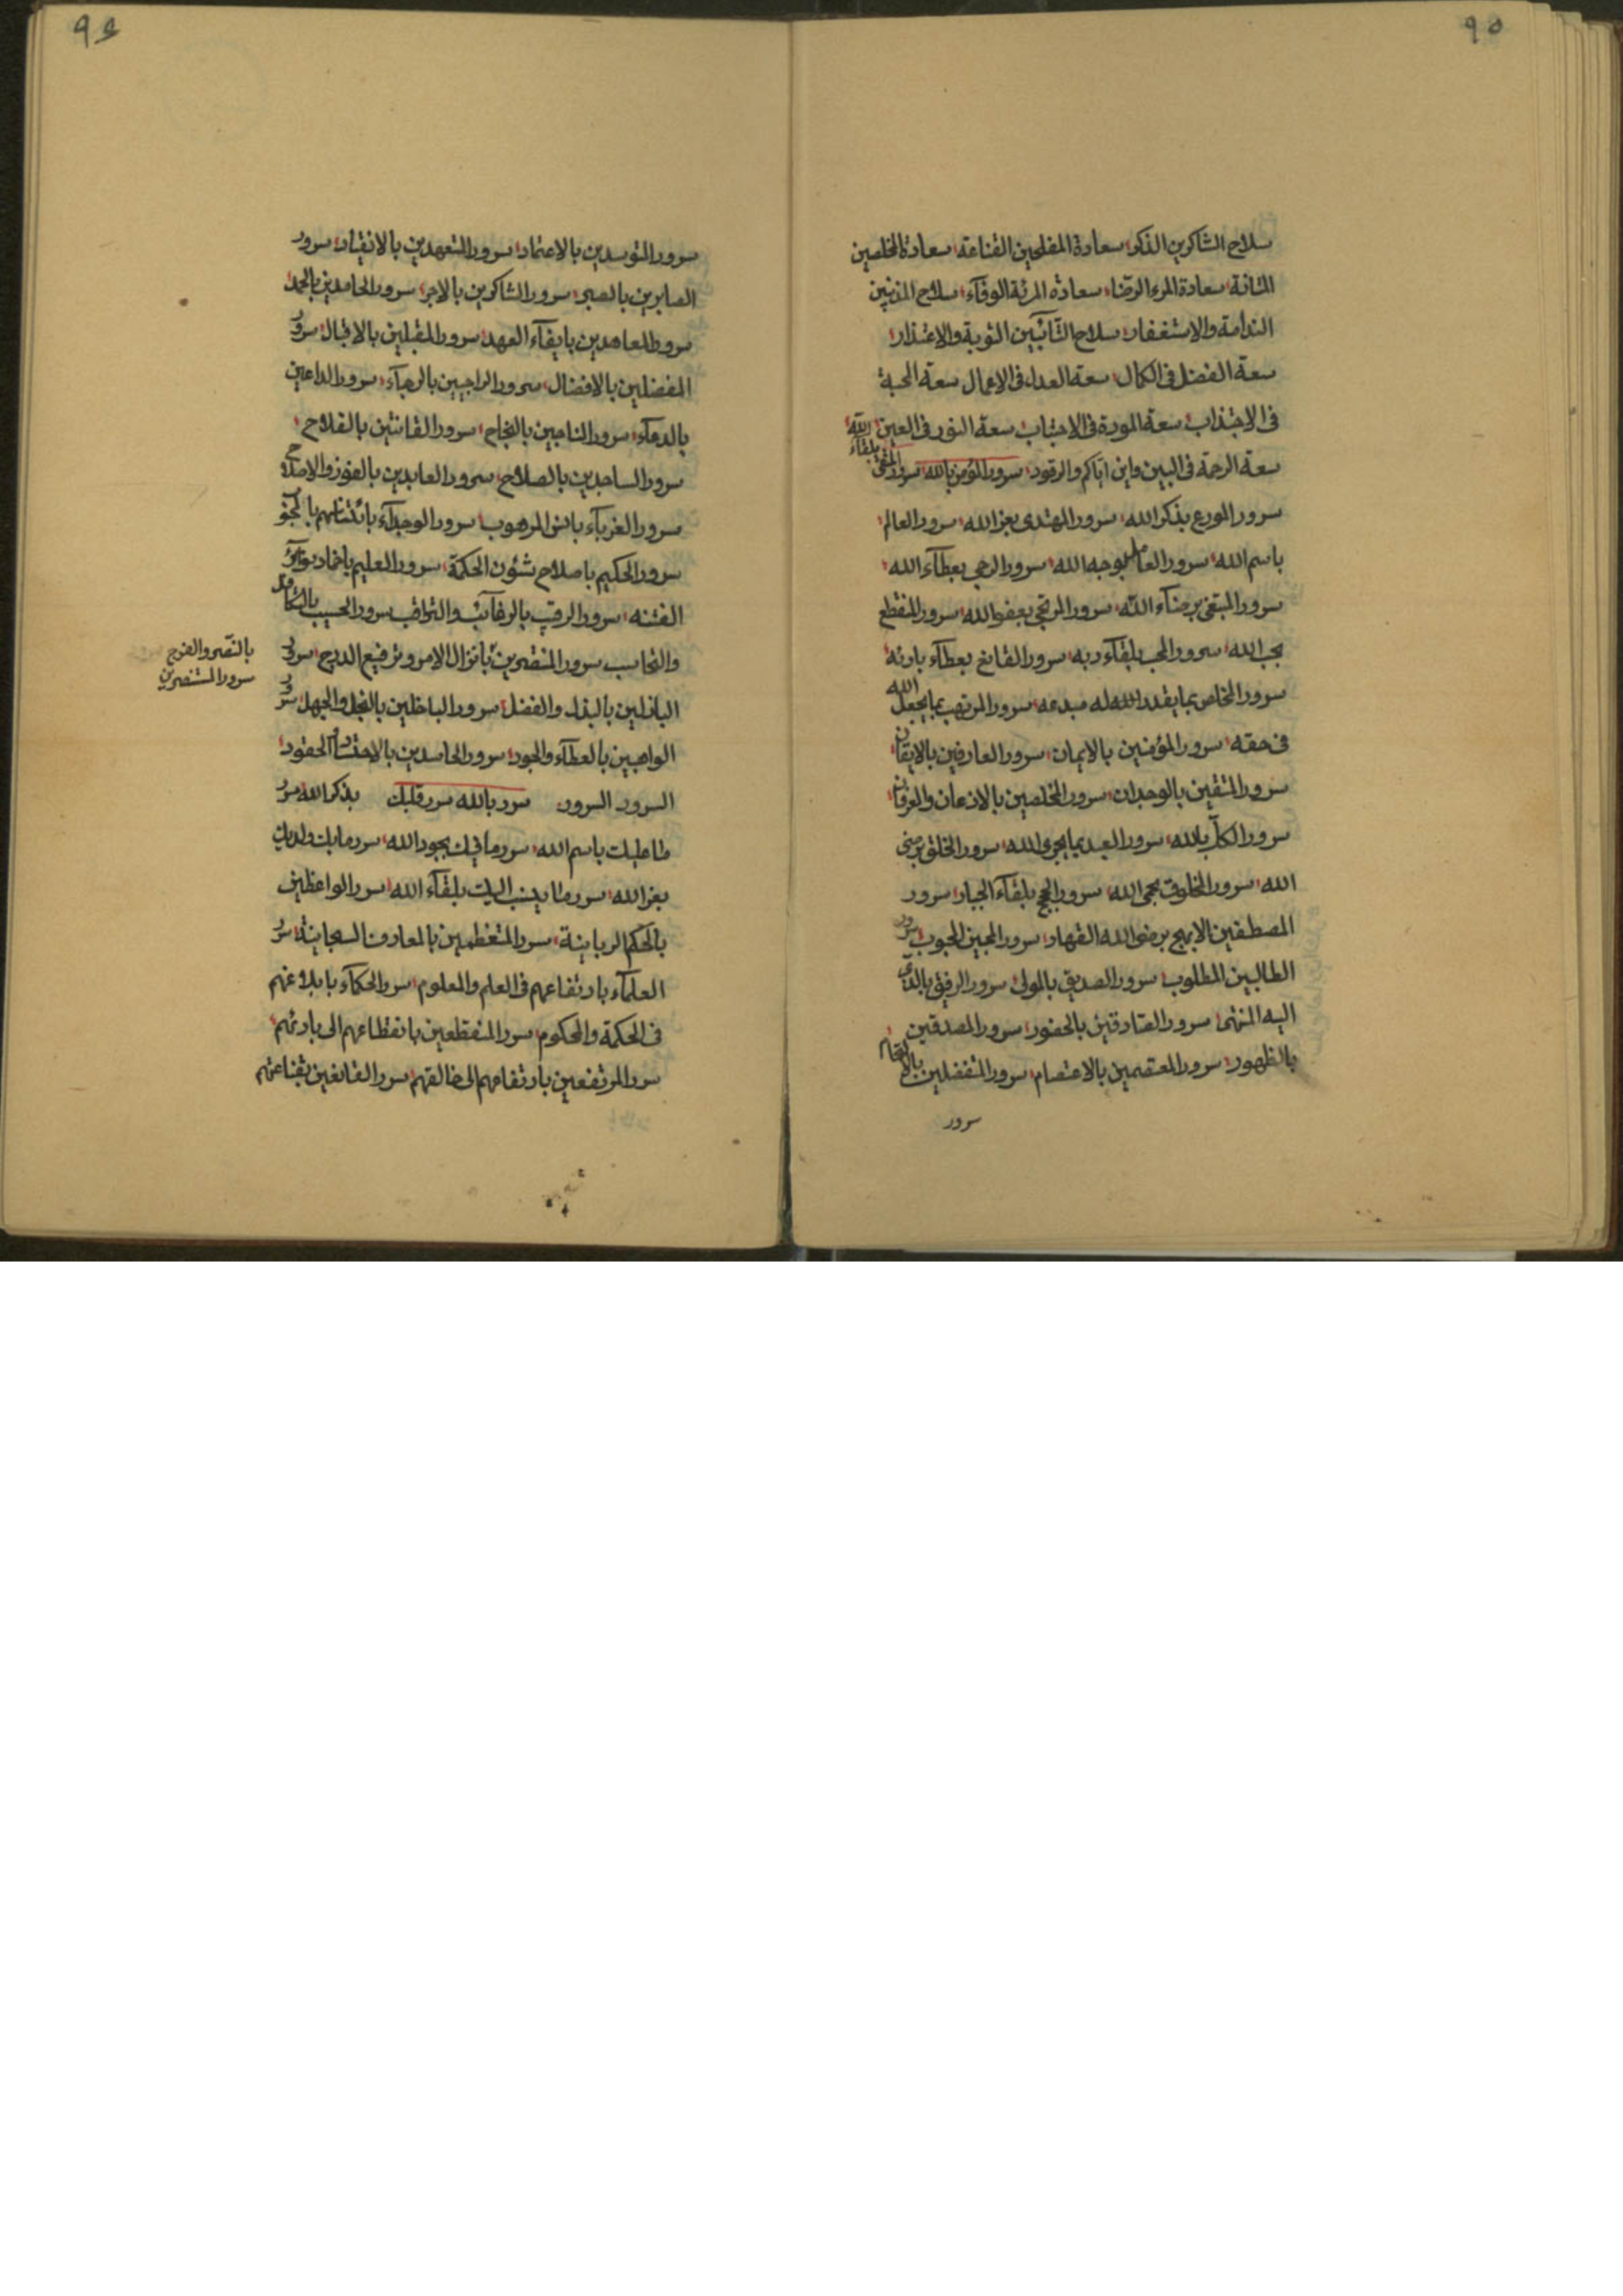 ٩٥
سلاح الشاكرين الذكر سعادة المفلحين القناعة سعادة المخلصين
المتانة سعادة المرء الرضا سعادة المرئة الوفآء سلاح المذنبين
الندامة والاستغفار سلاح التآئبين التوبة والاعتذار
سعة الفضل فى الكمال سعة العداء فى الاعمال سعة المحبة
فى الاجتذاب سعة المودة فى الاجتناب سعة النور فى العين
سعة الرحمة فى البين واين اياكم والرقود سرور المؤمن بالله سرور المتقى بلقآء الله
سرور المورع بذكر الله سرور المهتدى بعز الله سرور العالم
باسم الله سرور العامل بوجه الله سرور الرجى بعطآء الله
سرور المبتغى برضآء الله سرور المرتجى بعفو الله سرور المنقطع
بحب الله سرور المحب بلقآء ربه سرور القانع بعطآء بارئه
سرور الخاص بما يقدر الله له مبدعه سرور المرتقب بما يجعل الله
فى حقه سرور المؤمنين بالايمان سرور العارفين بالايقان
سرور المتقين بالوجدان سرور المخلصين بالاذعان والعرفان
سرور الكل بالله سرور العبد بما يجرى الله سرور الخلق برضى
الله سرور المخلوق بحمى الله سرور الحج بلقآء الجبار سرور
المصطفين الابهج برضى الله القهار سرور المحبين المحبوب سرور
الطالبين المطلوب سرور الصديق بالمولى سرور الرفيق بالذى
اليه المنتهى سرور الصادقين بالحضور سرور المصدقين
بالظهور سرور المعتصمين بالاعتصام سرور المتفضلين
سرور
٩٤
سرور المتوسدين بالاعتماد سرور المتعهدين بالانقياد سرور
الصابرين بالصبر سرور الشاكرين بالاجر سرور الحامدين بالحمد
سرور المعاهدين بايفآء العهد سرور المقبلين بالاقبال سرور
المفضلين بالافضال سرور الراجيين بالرجآء سرور الداعين
بالدعآء سرور الناجين بالنجاح سرور القانتين بالفلاح
سرور الساجدين بالصلاح سرور العابدين بالفوز والاصلاح
سرور الغربآء بانس المرهوب سرور الوجدآء
سرور الحكيم باصلاح شئون الحكمة سرور العليم باخماد
الفتنه سرور الرقيب بالرغآئب والتراقب سرور الحسيب
والتحاسب سرور المنتصرين بانزال الامر وترفيع الدرج سرور
بالنصر والفرج
سرور المستنصرين
الباذلين بالبذل والفضل سرور الباخلين بالبخل والجهل سرور
الواهبين بالعطآء والجود سرور الحاسدين بالاحتساد الحقود
السرور السرور سرر بالله سرر قلبك بذكر الله سرر
ما عليك باسم الله سرر ما فيك بجود الله سرر ما بك ولديك
بعز الله سرر ما ينسب اليك بلقآء الله سرر الواعظين
بالحكم الربانية سرر المتعظمين بالمعارف السبحانية سرر
العلمآء بارتفاعهم فى العلم والمعلوم سرر الحكمآء بابلاغهم
فى الحكمة والمحكوم سرر المنقطعين بانقطاعهم الى بارئهم
سرر المرتفعين بارتفاعهم الى خالقهم سرر القانعين بقناعتهم